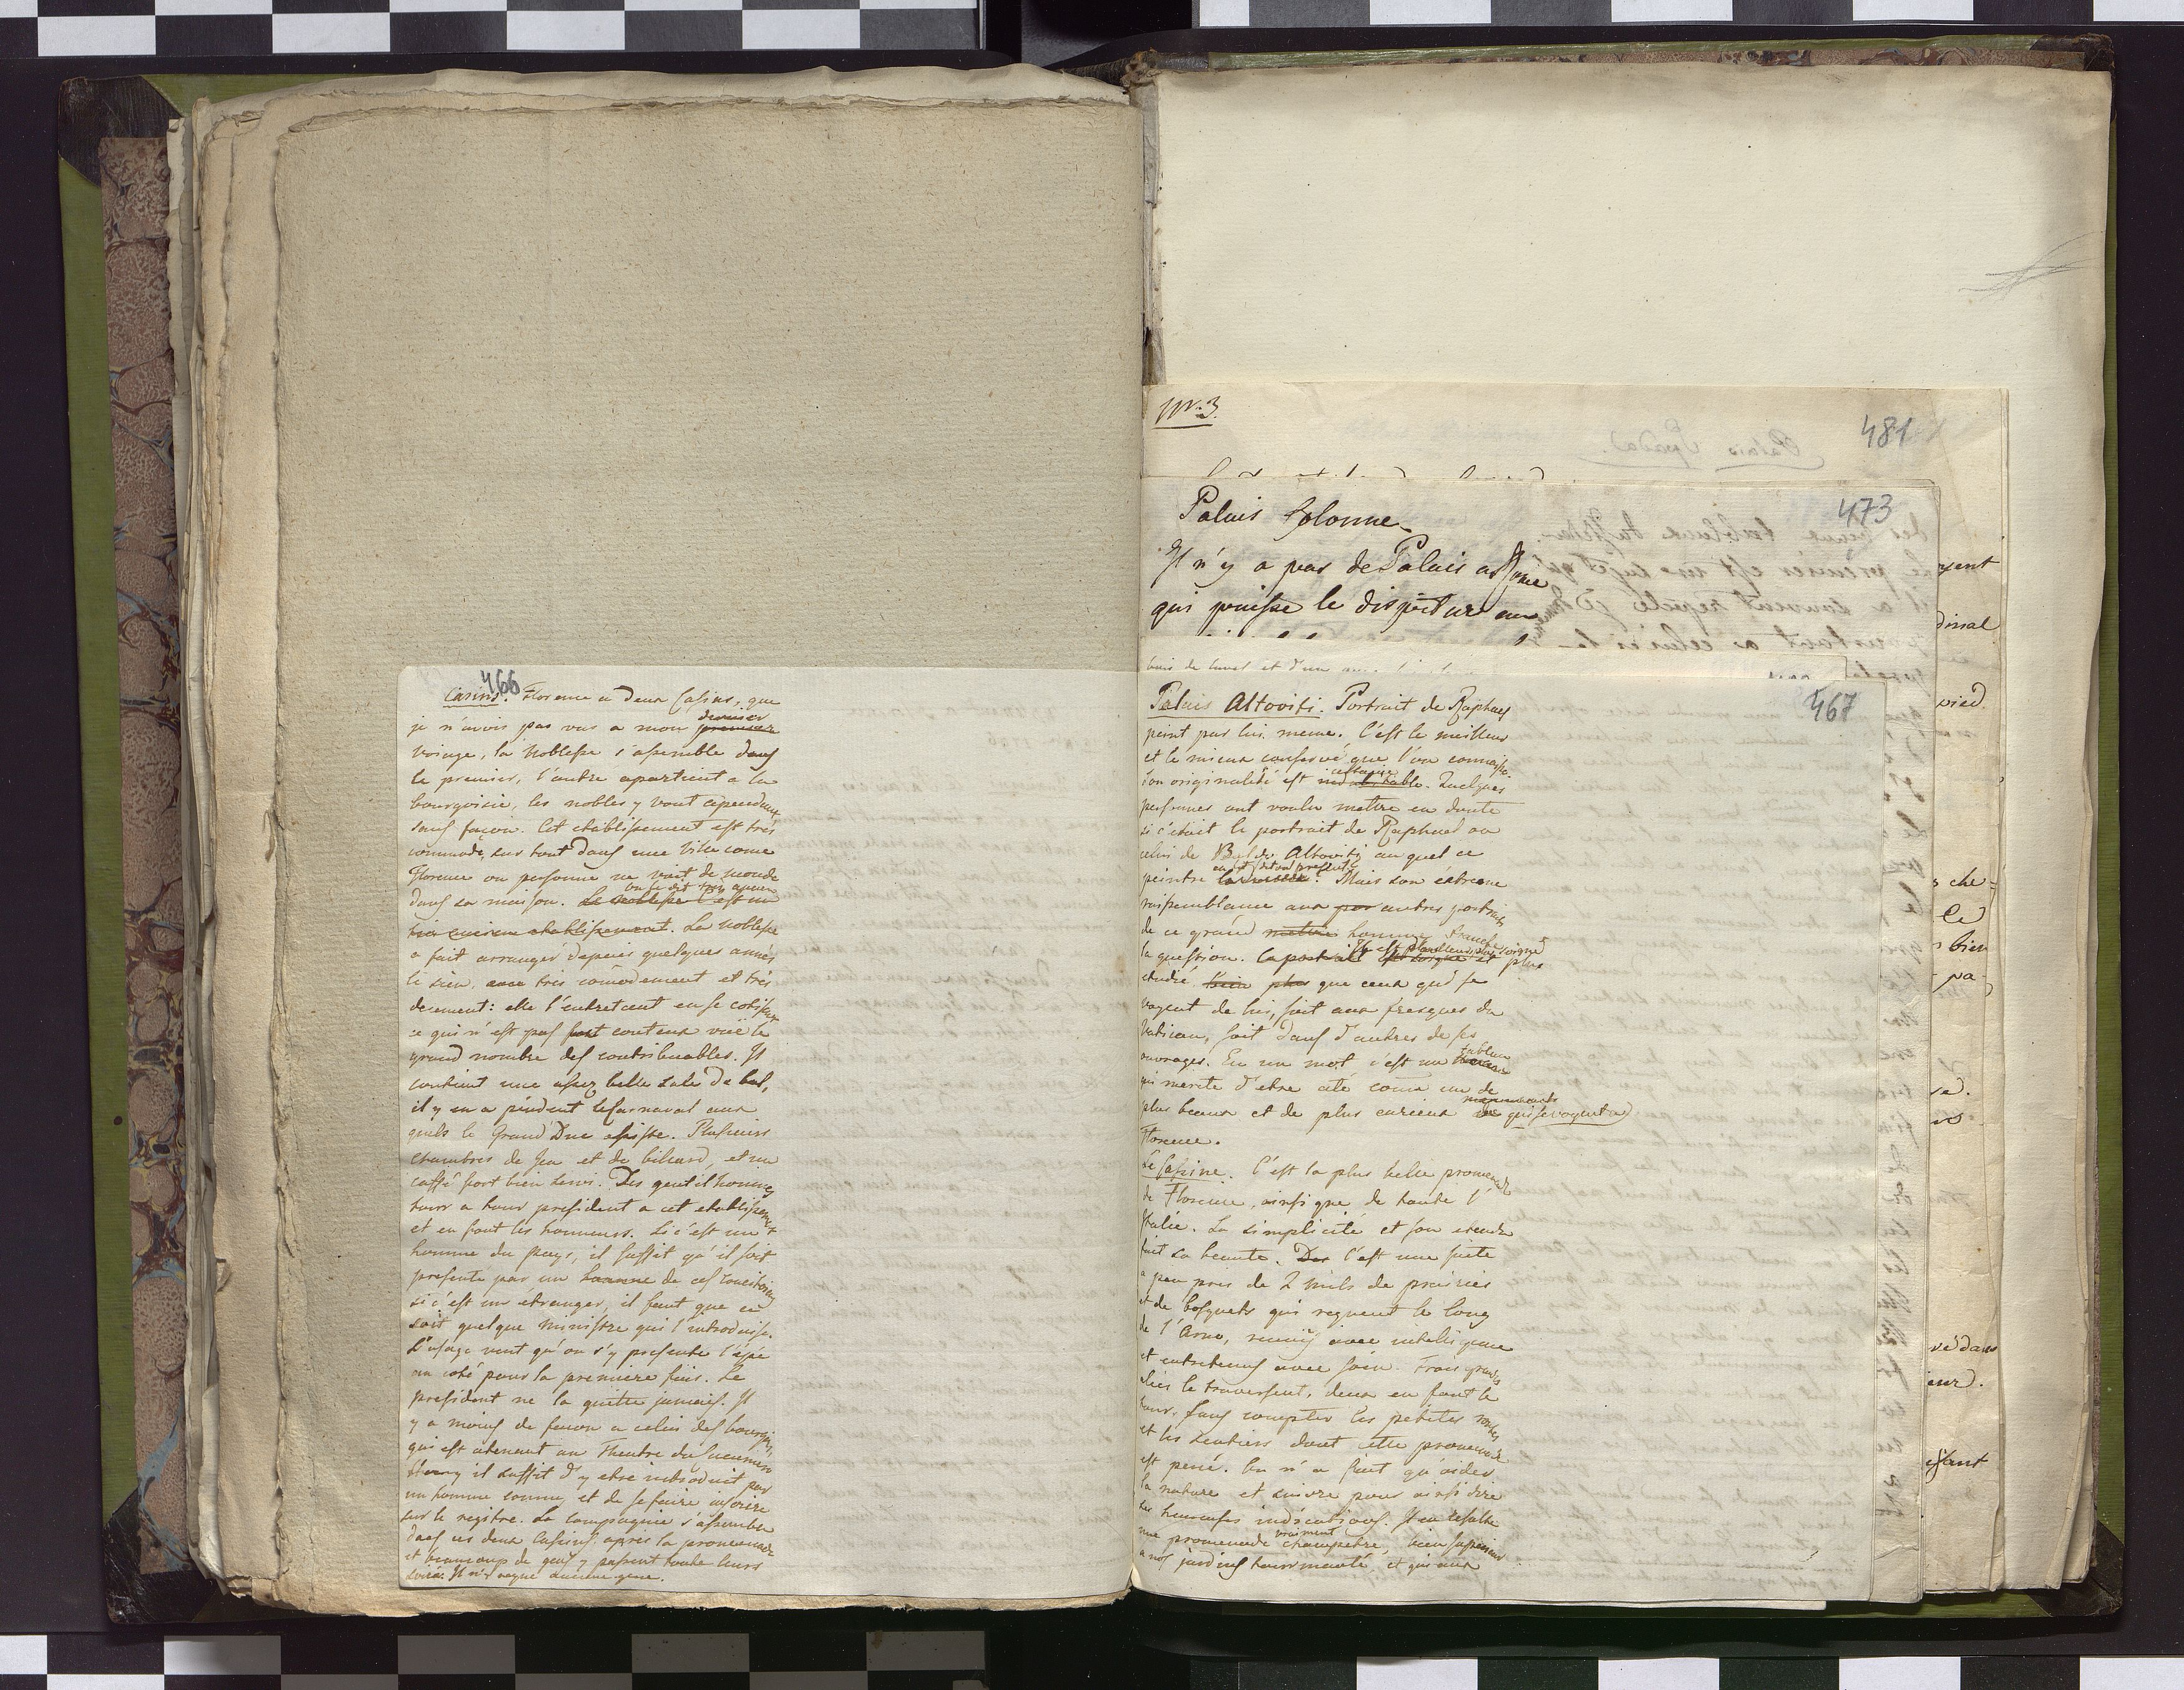 466
Casins. Florence a deux Casins, que
je n'avois pas vus a mon premier dernier
voiage, la Noblesse s'assemble dans
le premier, l'autre apartient a la
bourgoisie, les nobles y vont cependant
sans façon. Cet etablissement est très
commode, sur tout dans une Ville come
Florence ou personne ne voit de monde
dans sa maison. La noblesse c'est un
etablissement. La noblesse
a fait arranger depuis quelques années
le sien, avec très comodement et très
decement: elle l'entretient en se cotisant
ce qui n'est pas fort couteux vuë le
grand nombre des contribuables. Il
contient une assez belle sale de bal,
il y en a pendant le Carnaval aux
quels le Grand Duc assiste. Plusieurs
chambres de Jeu et de billard, et un
caffé fort bien servi. Des gentilhommes
tour a tour president a cet etablissement
et en font les honneurs. Si c'est un
homme du pays, il suffit qu'il soit
presenté par un homme de ces
si c'est un etranger, il faut que ce
soit quelque Ministre qui l'introduise.
L'usage veut qu'on s'y presente l'épée
au coté pour la premiere fois. Le
president ne la quitte jamais. Il
y a moins de façon a celui des bourgois,
qui est atenant au Theatre du
il suffit d'y etre introduit par
un homme connu et de se faire inscrire
sur le registre. La compagnie s'assemble
dans ces deux Casins après la promenade
et beaucoup de gens y passent toute leurs
soirée. Il n'y regne aucune gene.
Nr. 3.
481
Palais Colonne
473
Il n'y a pas de Palais a Rome
qui puisse le disputer en
467
Palais Altoviti. Portrait de Raphael
peint par lui meme. C'est le meilleur
et le mieux conservé que l'on connoisse.
Son originalité est indubitable. Quelques
personnes ont voulu mettre en doute
si c'était le portrait de Raphael ou
celui de Bindo Altoviti au quel ce
peintre en fit present. Mais son extreme
ressemblance aux autres portraits
de ce grand maitre homme tranche
la question. Ce portrait est plus soigné
etudié bien plus que ceux qui se
voyent de lui, soit aux fresques du
Vatican, soit dans d'autres de ses
ouvrages. En un mot c'est un tableau
qui merite d'etre cité come un de
plus beaux et de plus curieux monuments qui se voyent a
Florence.
Le Cassine. C'est la plus belle promenade
de Florence, ainsi que de toute l'
Italie. La simplicité et son etendue
fait sa beauté. C'est une suite
a peu pres de 2 mils de prairies
et de bosquets qui regnent le long
de l'Arno, reuniş avec intelligence
et entretenus avec soin. Trois grandes
aleés le traversent, deux en font le
tour. Sans compter les petites routes
et les sentiers dont cette promenade
est percé. On n'a fait qu'aider
la nature et suivre pour ainsi dire
ses heureuses indications. Il en resulte
une promenade vraiment champetre, bien superieur
a nos jardins tourmenté, et qui aux